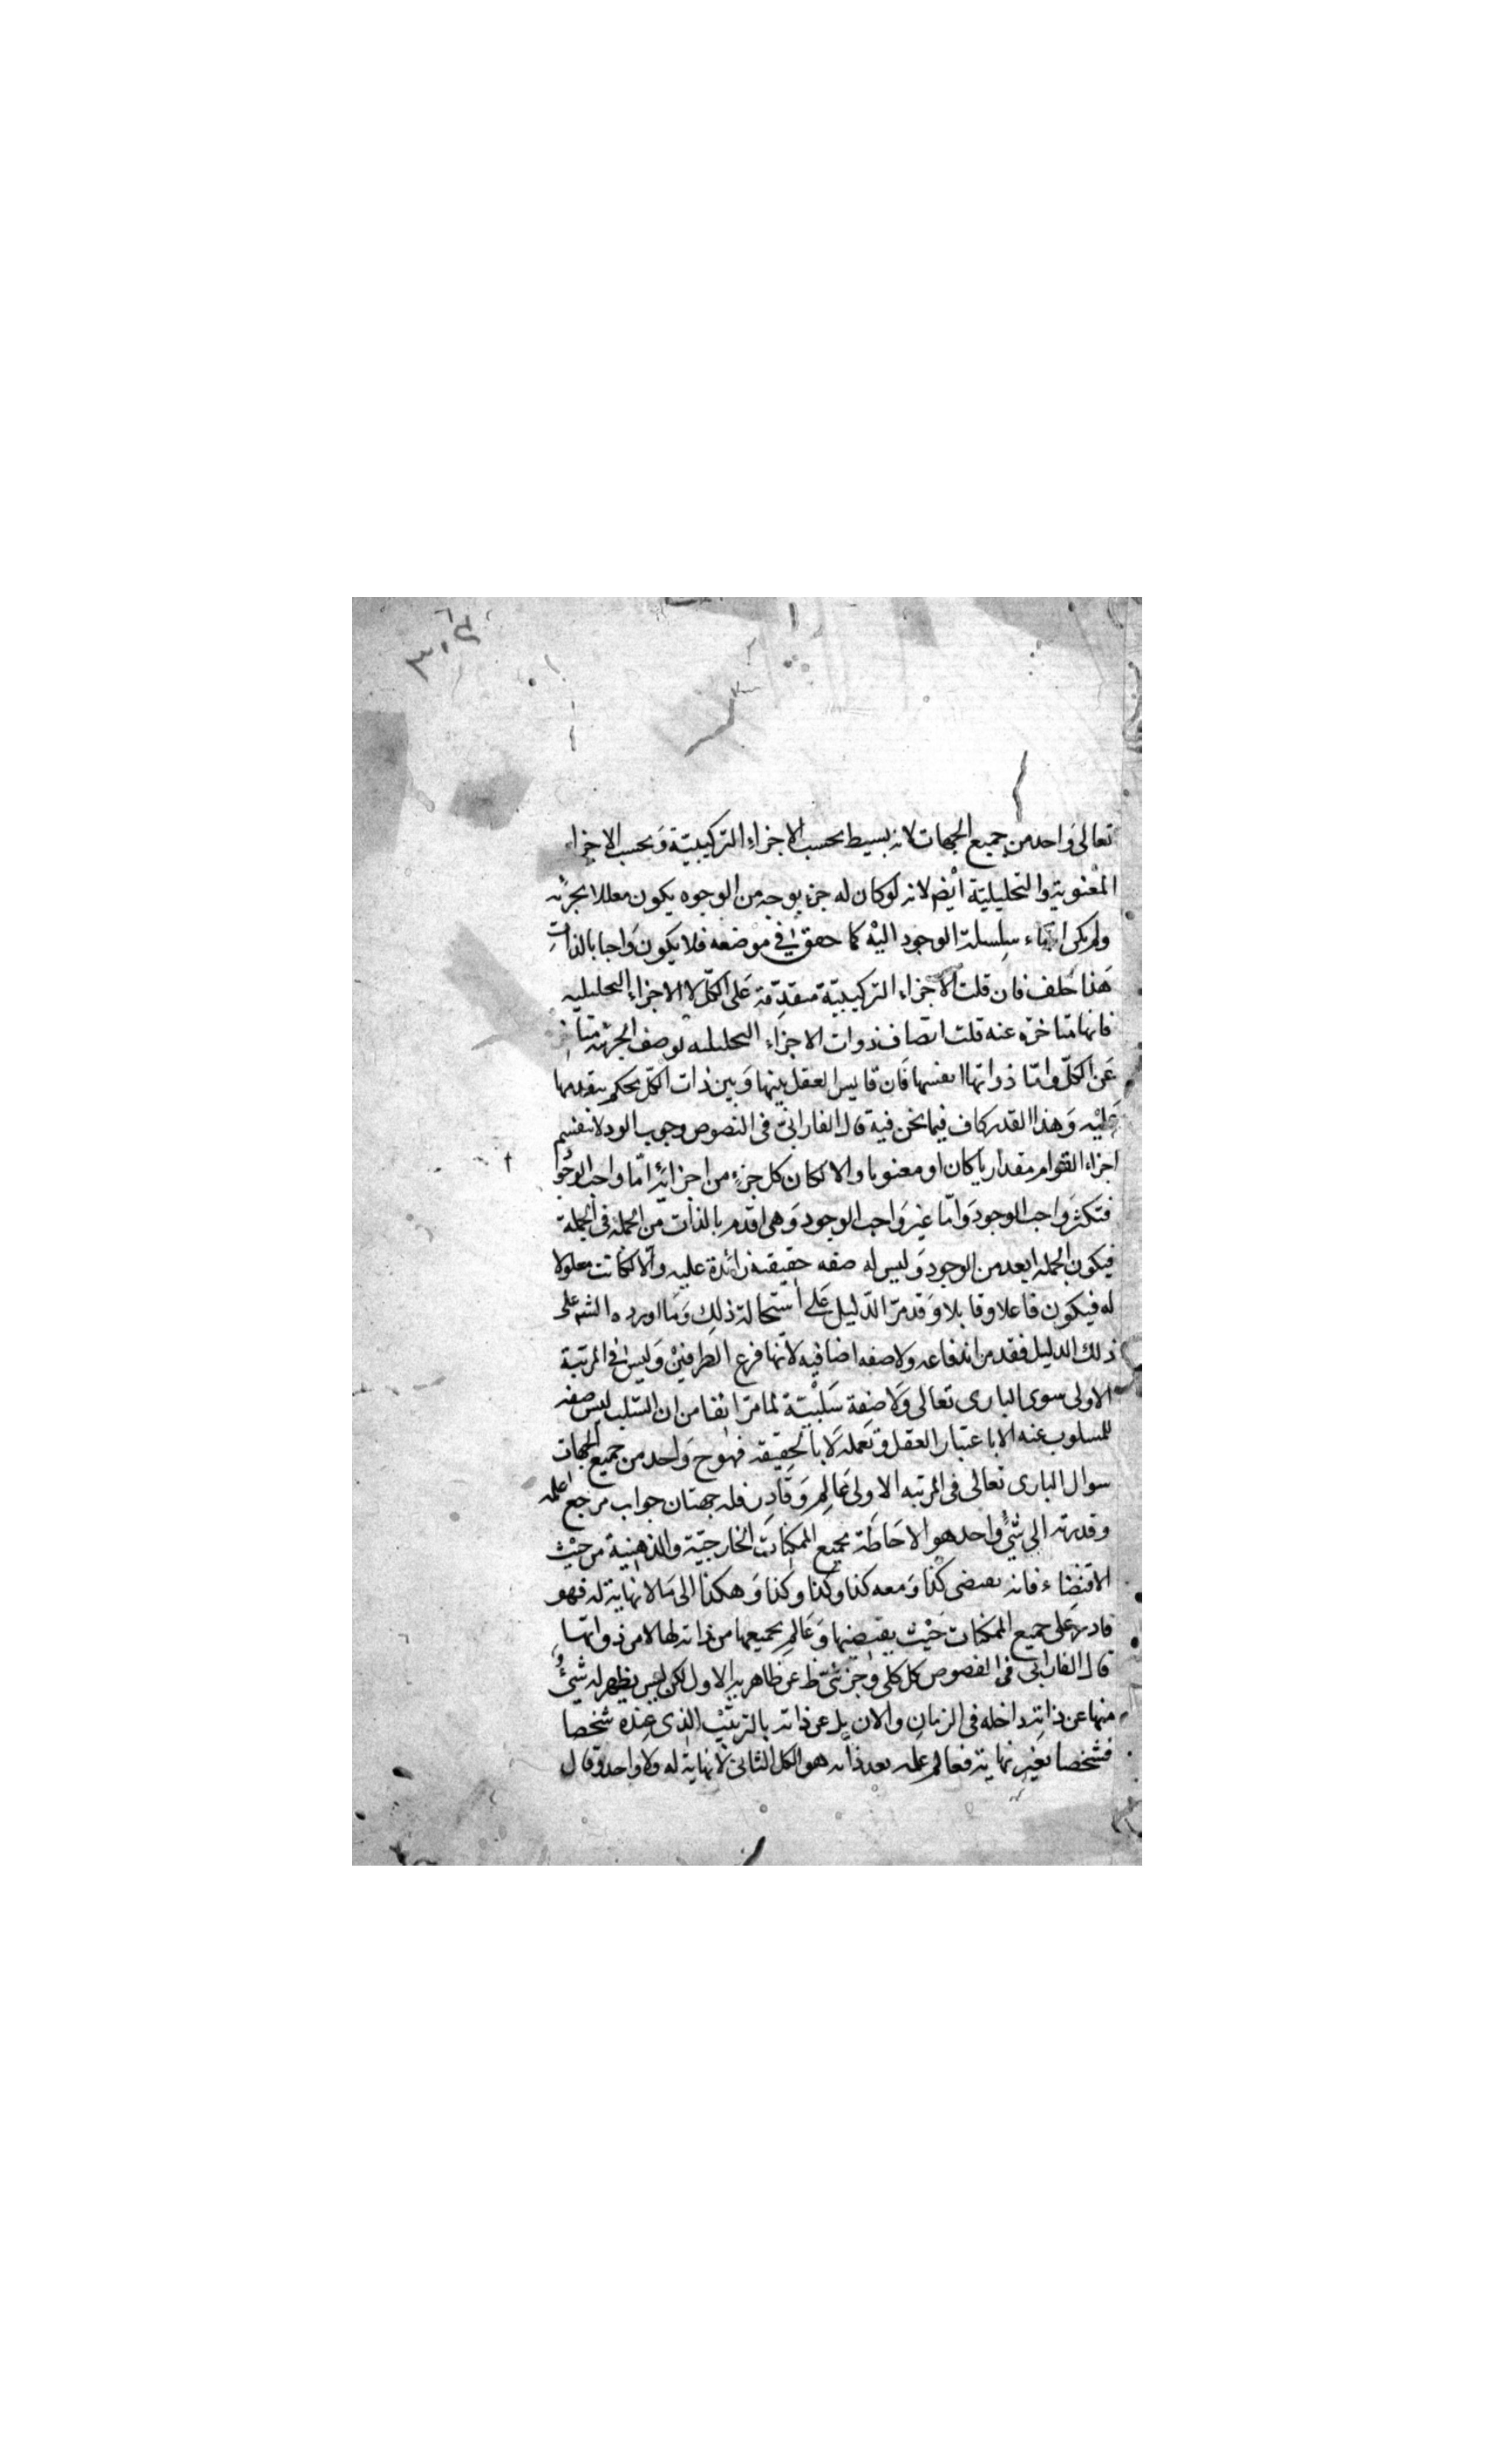 تعالى واحد من جميع الجهات لانه بسيط بحسب الاجزاء التركيبية وبحسب الاجزاء
المعنوية والتحليلية ايضا لانه لو كان له جزء بوجه من الوجوه يكون معللا بجزئه
ولم يكن انتهاء سلسلة الوجود اليه كما حقق في موضعه فلا يكون واجبا بالذات
هذا خلف فان قلت الاجزاء التركيبية متقدمة على الكل لا الاجزاء التحليليه
فانها متاخرة عنه قلت اتصاف ذوات الاجزاء التحليليه بوصف الجزئيه متاخر
عن الكل واما ذواتها انفسها فان قايس العقل بينها وبين ذات الكل يحكم بتقدمها
عليه وهذا القدر كاف فيما نحن فيه قال الفارابي في الفصوص وجوب الوجود لا ينقسم
اجزاء القوام مقداريا كان او معنويا والا لكان كل جزء من اجزائه اما واجب الوجود
فتكثر واجب الوجود واما غير واجب الوجود وهي اقدم بالذات من الجمله في الجملة
فيكون الجمله ابعد من الوجود وليس له صفه حقيقية زائدة عليه والا لكانت معلولا
له فيكون فاعلا وقابلا وقد مر الدليل على استحالة ذلك وما اورده الشه على
ذلك الدليل فقد مر اندفاعه ولا صفه اضافيه لانها فرع الطرفين وليس في المرتبة
الاولى سوى البارى تعالى ولا صفة سلبية لما مر انفا من ان السلب ليس صفه
للمسلوب عنه الا باعتبار العقل وتعمله لا بالحقيقه فهو ح واحد من جميع الجهات
سوال البارى تعالى في المرتبه الاولى عالم وقادر فله جهتان جواب مرجع علمه
وقدرته الى شئ واحد هو الاحاطة بجميع الممكنات الخارجية والذهنية من حيث
الاقتضاء فانه يقتضى كذا ومعه كذا وكذا وكذا وهكذا الى ما لا نهاية له فهو
قادر على جميع الممكنات حيث يقتضيها وعالم بجميعها من ذاته لها لا من ذواتها
قال الفارابي في الفصوص كل كلى وجزئي ظ عن ظاهريه الاول لكن ليس يظهر له شئ
منها عن ذاته داخله في الزمان والان بل عن ذاته بالترتيب الذى عنده شخصا
فشخصا بغير نهاية فعالم علمه بعد ذاته هو الكل الثانى لا نهاية له ولا واحد وقال